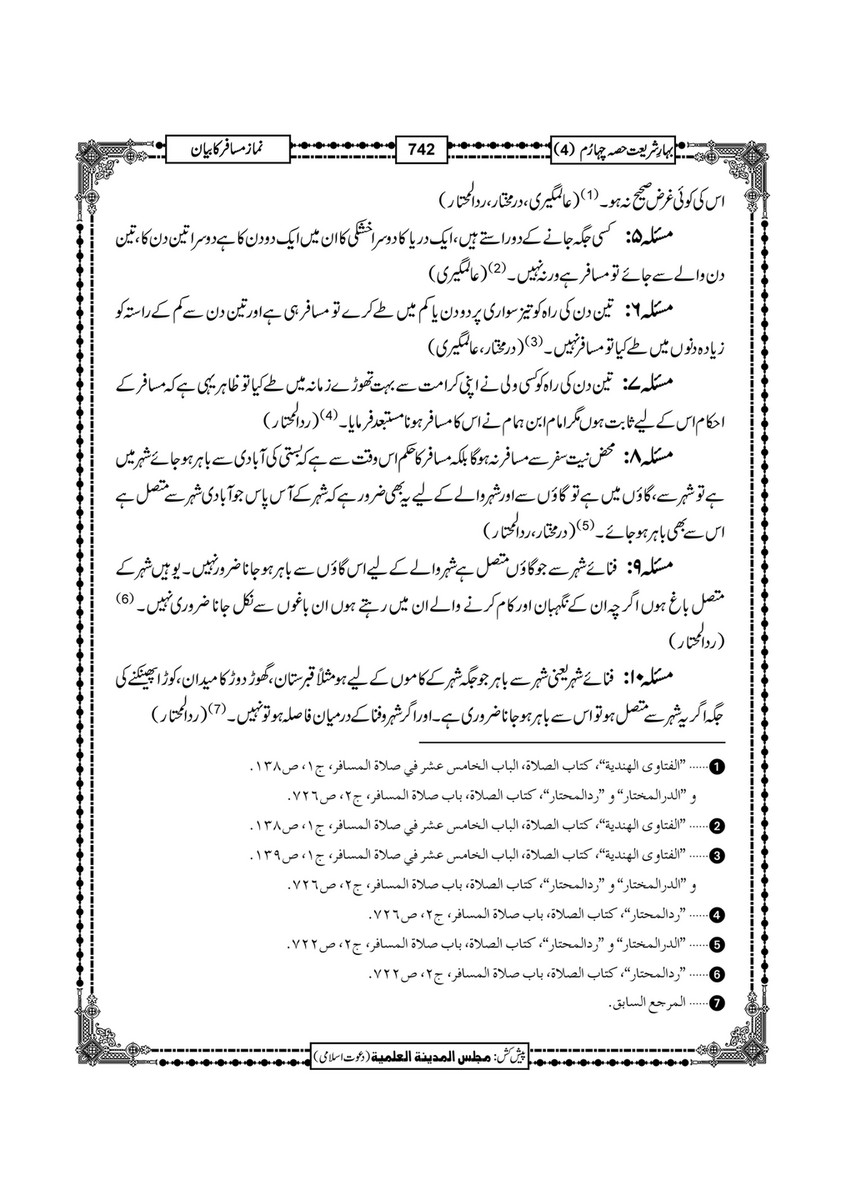 بہارِ شریعت حصہ چہارم (4)
742
نماز مسافر کا بیان
اس کی کوئی غرض صحیح نہ ہو۔(1) (عالمگیری، درمختار، ردالمحتار)
مسئلہ ۵: کسی جگہ جانے کے دو راستے ہیں، ایک دریا کا دوسرا خشکی کا ان میں ایک دو دن کا ہے دوسرا تین دن کا، تین
دن والے سے جائے تو مسافر ہے ورنہ نہیں۔(2) (عالمگیری)
مسئلہ ۶: تین دن کی راہ کو تیز سواری پر دو دن یا کم میں طے کرے تو مسافر ہی ہے اور تین دن سے کم کے راستہ کو
زیادہ دنوں میں طے کیا تو مسافر نہیں۔(3) (درمختار، عالمگیری)
مسئلہ ۷: تین دن کی راہ کو کسی ولی نے اپنی کرامت سے بہت تھوڑے زمانہ میں طے کیا تو ظاہر یہی ہے کہ مسافر کے
احکام اس کے لیے ثابت ہوں مگر امام ابن ہمام نے اس کا مسافر ہونا مستبعد فرمایا۔(4) (ردالمحتار)
مسئلہ ۸: محض نیت سفر سے مسافر نہ ہوگا بلکہ مسافر کا حکم اس وقت سے ہے کہ بستی کی آبادی سے باہر ہو جائے شہر میں
ہے تو شہر سے، گاؤں میں ہے تو گاؤں سے اور شہر والے کے لیے یہ بھی ضرور ہے کہ شہر کے آس پاس جو آبادی شہر سے متصل ہے
اس سے بھی باہر ہو جائے۔(5) (درمختار، ردالمحتار)
مسئلہ ۹: فنائے شہر سے جو گاؤں متصل ہے شہر والے کے لیے اس گاؤں سے باہر ہو جانا ضرور نہیں۔ یوہیں شہر کے
متصل باغ ہوں اگرچہ ان کے نگہبان اور کام کرنے والے ان میں رہتے ہوں ان باغوں سے نکل جانا ضروری نہیں۔(6)
(ردالمحتار)
مسئلہ ۱۰: فنائے شہر یعنی شہر سے باہر جو جگہ شہر کے کاموں کے لیے ہو مثلاً قبرستان، گھوڑ دوڑ کا میدان، کوڑا پھینکنے کی
جگہ اگر یہ شہر سے متصل ہو تو اس سے باہر ہو جانا ضروری ہے۔ اور اگر شہر و فنا کے درمیان فاصلہ ہو تو نہیں۔(7) (ردالمحتار)
❶...... "الفتاوى الهندية"، كتاب الصلاة، الباب الخامس عشر في صلاة المسافر، ج١، ص١٣٨.
و "الدرالمختار" و "ردالمحتار"، كتاب الصلاة، باب صلاة المسافر، ج٢، ص٧٢٦.
❷...... "الفتاوى الهندية"، كتاب الصلاة، الباب الخامس عشر في صلاة المسافر، ج١، ص١٣٨.
❸...... "الفتاوى الهندية"، كتاب الصلاة، الباب الخامس عشر في صلاة المسافر، ج١، ص١٣٩.
و "الدرالمختار" و "ردالمحتار"، كتاب الصلاة، باب صلاة المسافر، ج٢، ص٧٢٦.
❹...... "ردالمحتار"، كتاب الصلاة، باب صلاة المسافر، ج٢، ص٧٢٦.
❺...... "الدرالمختار" و "ردالمحتار"، كتاب الصلاة، باب صلاة المسافر، ج٢، ص٧٢٢.
❻...... "ردالمحتار"، كتاب الصلاة، باب صلاة المسافر، ج٢، ص٧٢٢.
❼...... المرجع السابق.
پیش کش: مجلس المدينة العلمية (دعوت اسلامی)